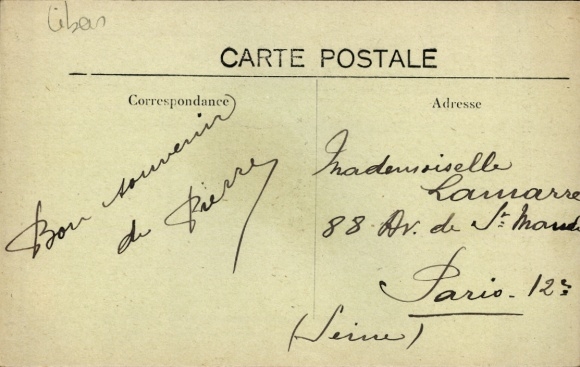 Liban
CARTE POSTALE
Correspondance
Adresse
Bon souvenir
de Pierre
Mademoiselle
Lamarre
88 Av. de St Mandé
Paris - 12e
(Seine)